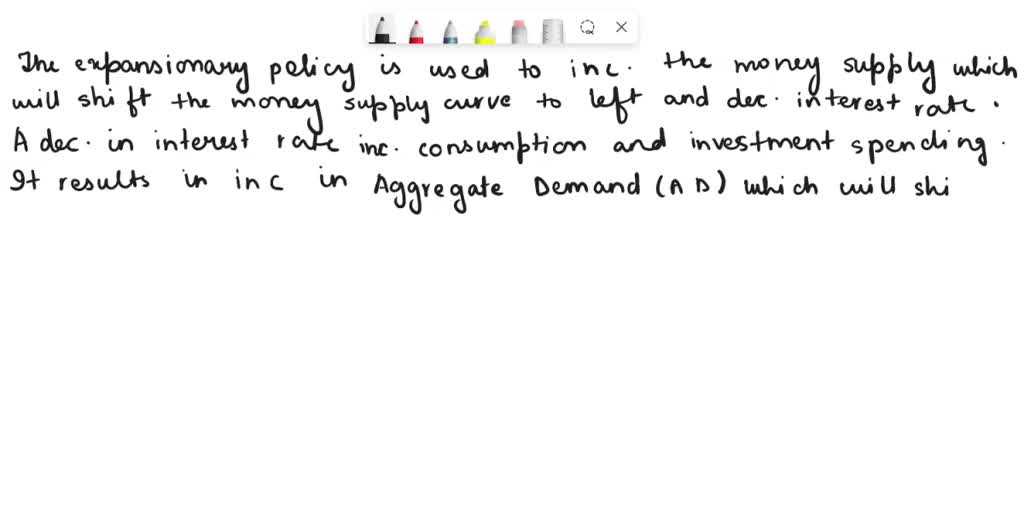 The expansionary policy is used to inc. the money supply which
will shift the money supply curve to left and dec. interest rate.
A dec. in interest rate inc. consumption and investment spending.
It results in inc in Aggregate Demand (AD) which will shi